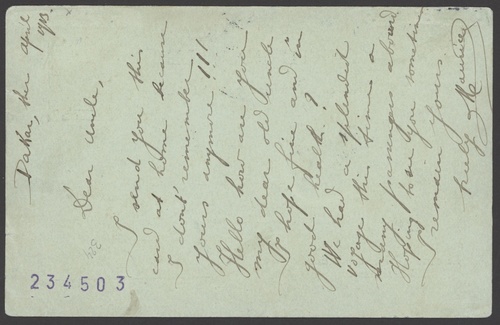 Dakar, the april
1913
Dear Uncle,
I send you this
card at home because
I dont' remember
yours anymore !!!
Hello how are you
my dear old uncle
I hope fine and in
good health?
We had a splendid
voyage this time a
many passengers aboard
Hoping to see you sometime
I remain yours
truly
Maurice
329
234503